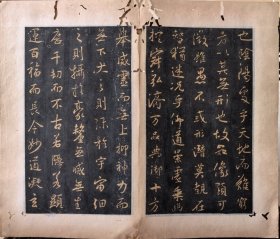 也陰陽處乎天地而難窮
者以其無形也故知像顯可
徵雖愚不惑形潛莫覩在
智猶迷況乎佛道崇虛乘幽
控寂弘濟萬品典御十方
舉威靈而無上抑神力而
無下大之則弥於宇宙細
之則攝於豪釐無滅無生
歷千劫而不古若隱若顯
運百福而長今妙道凝玄